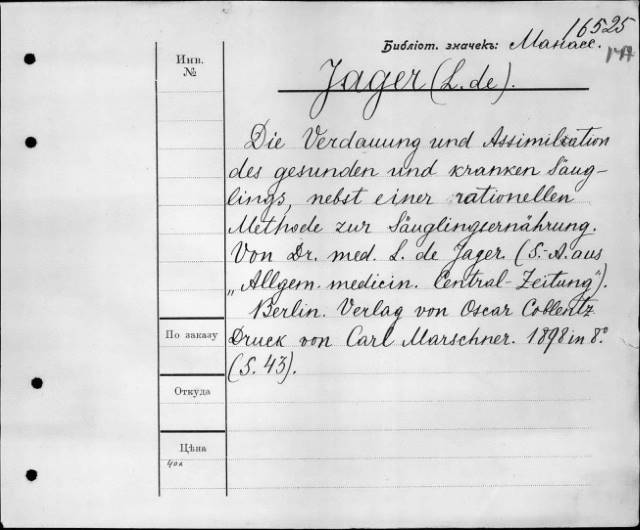 16525
Библіот. значекъ: Манасе.
Инв.
№
Jager (L. de).
Die Verdauung und Assimilation
des gesunden und kranken Säug-
lings, nebst einer rationellen
Methode zur Säuglingsernährung.
Von Dr. med. L. de Jager. (S.-A. aus
„Allgem. medicin. Central-Zeitung").
Berlin. Verlag von Oscar Coblentz
По заказу
Druck von Carl Marschner. 1898 in 8.°
(S. 43).
Откуда
Цѣна